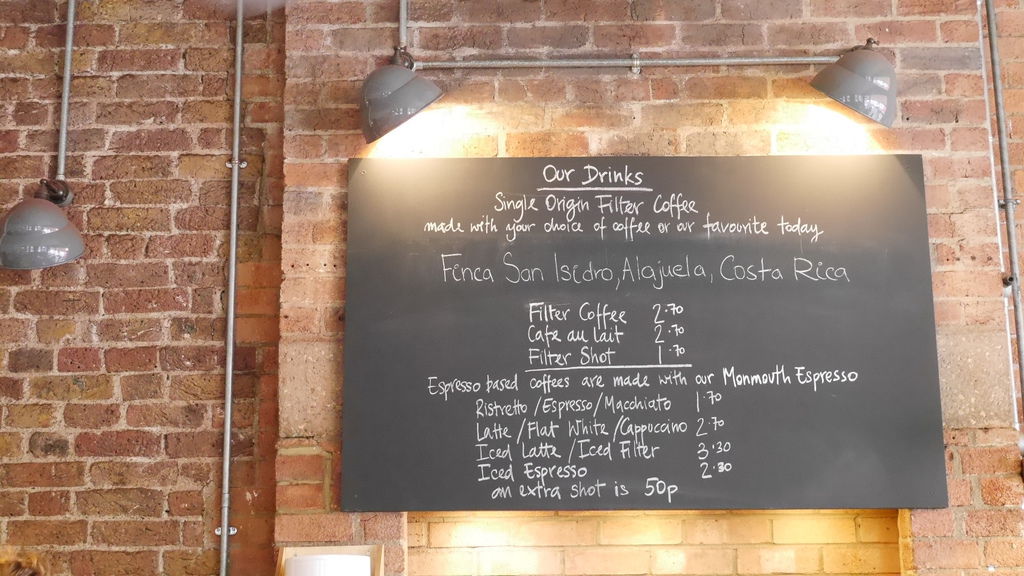 Our Drinks
Single Origin Filter Coffee
made with your choice of coffee or our favourite today
Finca San Isidro, Alajuela, Costa Rica
Filter Coffee 2.70
Cafe au lait 2.70
Filter Shot 1.70
Espresso based coffees are made with our Monmouth Espresso
Ristretto / Espresso / Macchiato 1.70
Latte / Flat White / Cappuccino 2.70
Iced Latte / Iced Filter 3.30
Iced Espresso 2.30
an extra shot is 50p